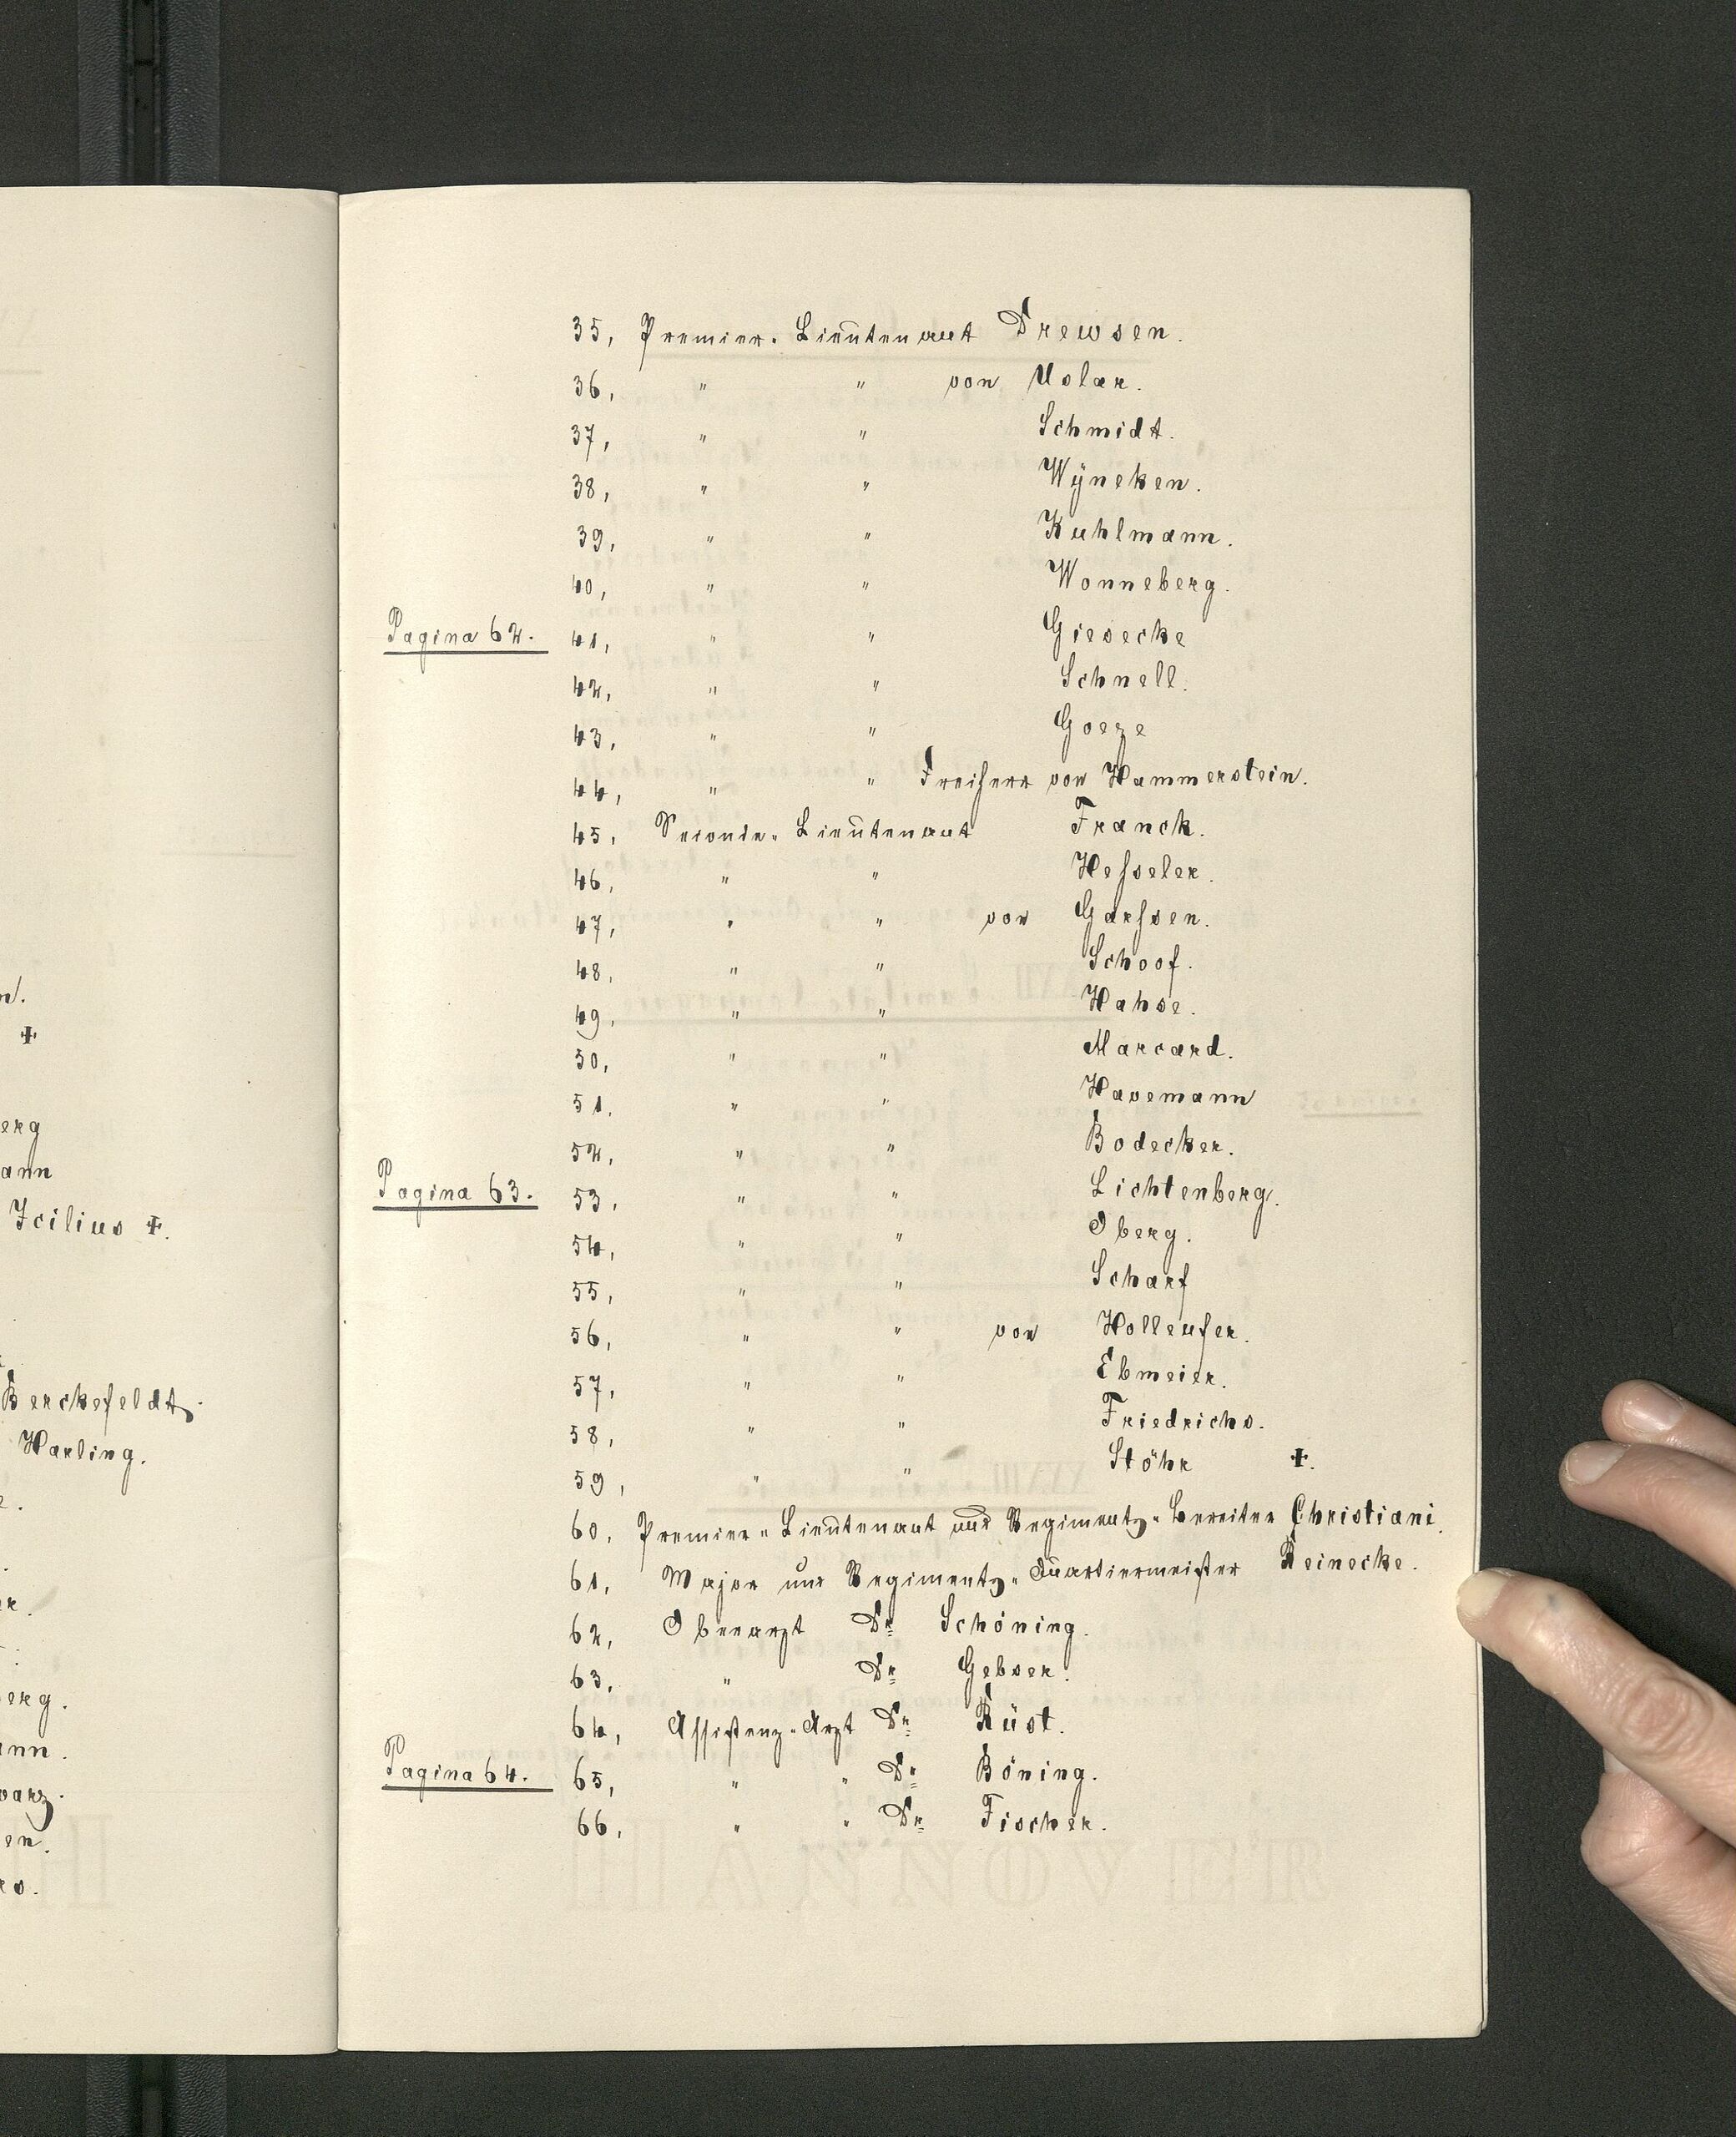 n.
✝
erg
ann
Icilius ✝.
Berckefeldt.
Harling.
e.
er.
erg.
ann.
warz.
en.
rs.
35, Premier-Lieutenant Drewsen.
36, " " von Uslar.
37, " " Schmidt.
38, " " Wÿneken.
39, " " Kuhlmann.
40, " " Wonneberg.
Pagina 62. 41, " " Giesecke
42, " " Schnell.
43, " " Goeze
44, " " Freiherr von Hammerstein.
45, Seconde-Lieutenant Franck.
46, " " Hesseler.
47, " " von Garssen.
48, " " Schoof.
49, " " Hahse.
50, " " Marcard.
51, " " Havemann
52, " " Bodecker.
Pagina 63. 53, " " Lichtenberg.
54, " " Oberg.
55, " " Scharf
56, " " von Holleufer.
57, " " Ebmeier.
58, " " Friedrichs.
59, " " Stöhr ✝.
60, Premier-Lieutenant und Regiments-Bereiter Christiani.
61, Major und Regiments-Quartiermeister Reinecke.
62, Oberarzt Dr Schöning.
63, " Dr Gebser.
64, Assistenz-Arzt Dr Rüst.
Pagina 64. 65, " " Dr Böning.
66, " " Dr Fischer.